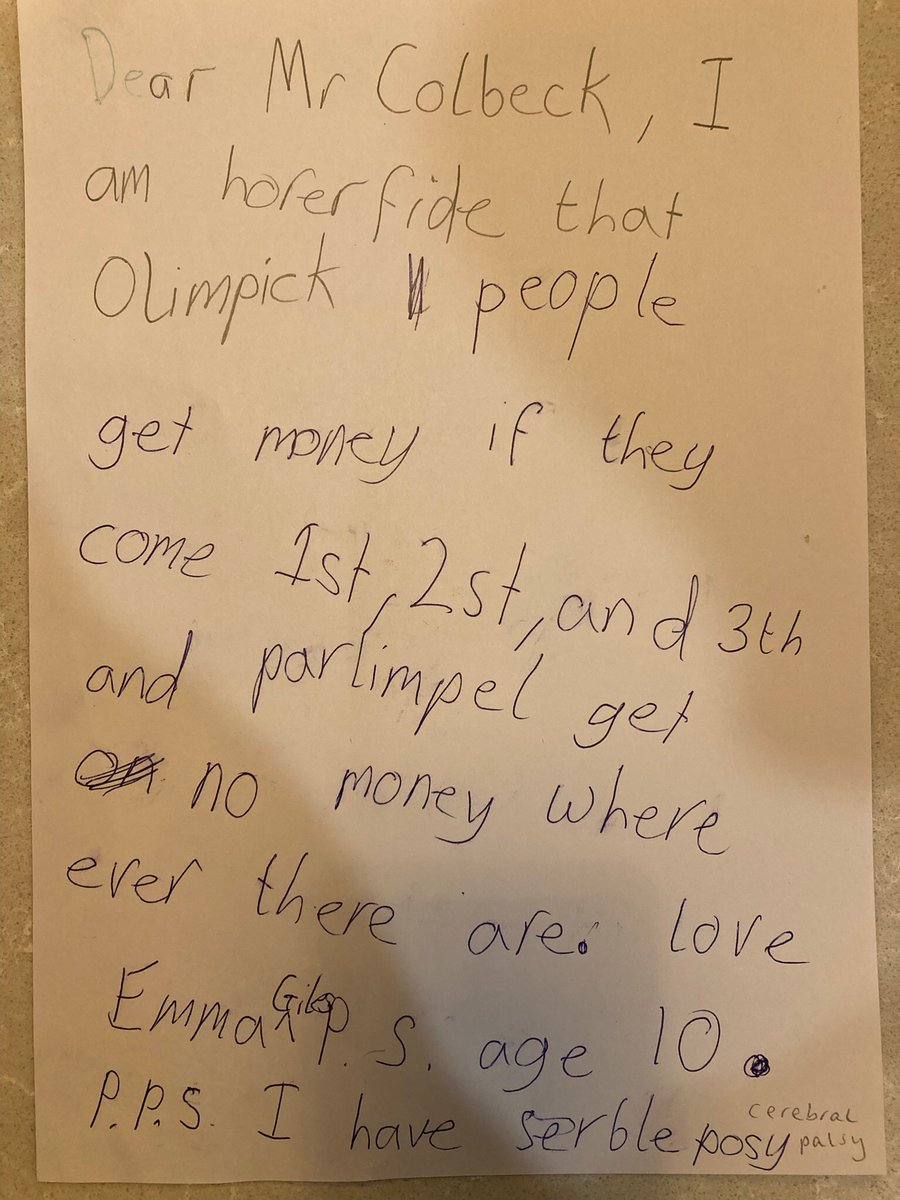 Dear Mr Colbeck, I
am horerfide that
Olimpick people
get money if they
come 1st, 2st, and 3th
and parlimpel get
no money where
ever there are. love
Emma Giles P.S. age 10.
P.P.S. I have serble posy
cerebral
palsy